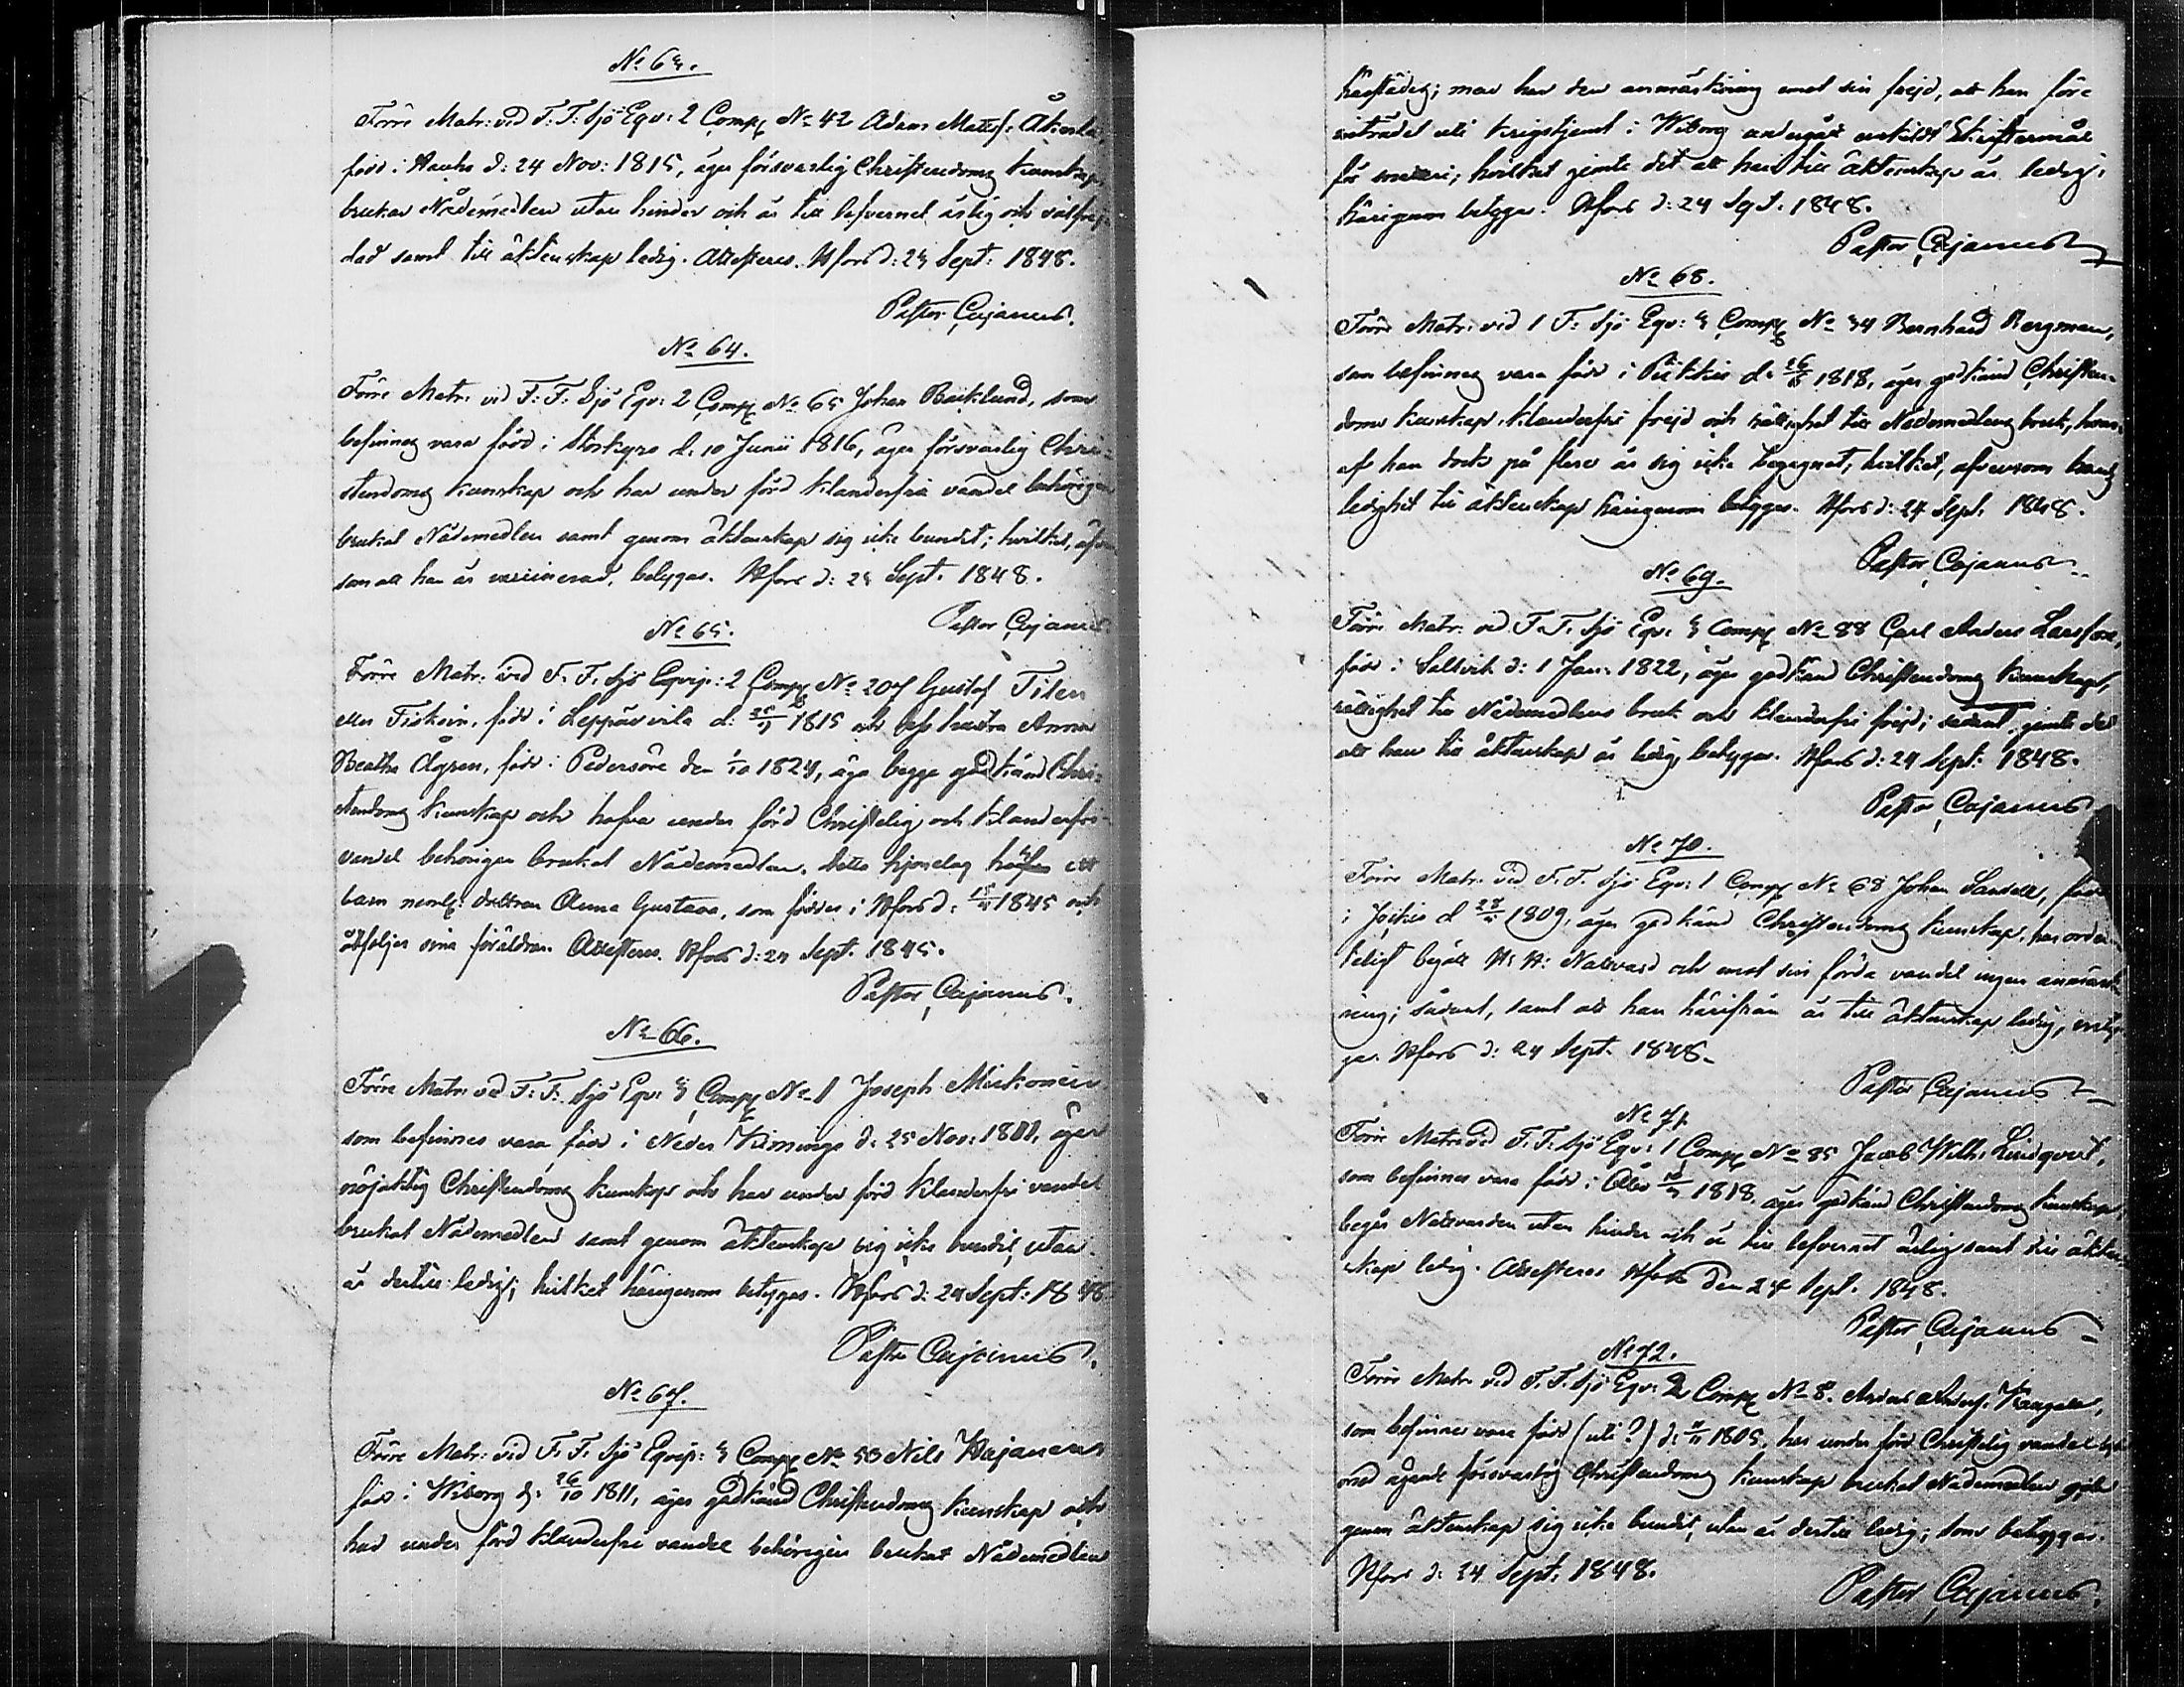 No 63.
Förre Matr: vid F. F. Sjö Eqv: 2 Comp: No 42 Adam Matts:
född i Hauho d: 24 Nov: 1815, äger försvarlig Christendoms kunskap,
brukar Nådemedlen utan hinder och är till lefvernet ärlig och välfrej-
dad samt till äktenskap ledig. Attesteras. Hfors d: 23 Sept: 1848.
Pastor Cajanus.
No 64.
Förre Matr: vid F. F. Sjö Eqv: 2 Comp: No 65 Johan Backlund, som
befinnes vara född i Storkyro d. 10 Junii 1816, äger försvarlig Chri-
stendoms kunskap och har under förd klanderfri vandel behörigen
brukat Nådemedlen samt genom äktenskap sig icke bundit; hvilket, äfven
som att han är vaccinerad, betygas. Hfors d: 23 Sept. 1848.
Pastor Cajanus
No 65.
Förre Matr: vid F. F. Sjö Eqvip: 2 Comp: No 207 Gustaf Tilen
eller Tiskoin, född i Leppävirta d: 1815 och dess hustru Anna
Beatha Ågren, född i Pedersöre den 1/10 1824, äga begge godkänd Chri-
stendoms kunskap och hafva under förd Christelig och klanderfri
vandel behörigen brukat Nådemedlen. Detta hjonelag ett
barn neml: dottren Anna Gustava, som föddes i Hfors d: 1845 och
åtföljer sina föräldrar. Attesteras. Hfors d: 24 Sept. 1845.
Pastor Cajanus.
No 66.
Förre Matr: vid F. F. Sjö Eqv: 3 Comp: No 1 Joseph Miskonen
som befinnes vara född i Neder Kiminge d: 25 Nov: 1811, äger
nöjaktig Christendoms kunskap och har under förd klanderfri vandel
brukat Nådemedlen samt genom äktenskap sig icke bundit, utan
är dertill ledig; hvilket härigenom betygas. Hfors d: 24 Sept: 1848
Pastor Cajanus.
No 67.
Förre Matr: vid F. F. Sjö Eqvip: 3 Comp: No 53 Nils Hajanen
född i Wiborg d: 26/10 1811, äger godkänd Christendoms kunskap och
har under förd klanderfri vandel behörigen brukat Nådemedlen
härstädes; men har den anmärkning emot sin frejd, att han före
inträdet uti krigstjenst i Wiborg undergått enskildt Skriftermål
för; hvilket jemte det att han till äktenskap är ledig,
härigenom betygas. Hfors d: 24 Sept. 1848.
Pastor Cajanus
No 68.
Förre Matr: vid 1 F: Sjö Eqv: 3 Comp: No 34 Bernhard Bergman,
som befinnes vara född i Piikkis d: 1818, äger godkänd Christen-
doms kunskap, klanderfri frejd och rättighet till Nådemedlens bruk, hvar-
af han dock på flere år sig icke begagnat, hvilket, äfvensom hans
ledighet till äktenskap härigenom betygas. Hfors d: 24 Sept. 1848.
Pastor Cajanus
No 69.
Förre Matr: vid F. F. Sjö Eqv: 3 Comp: No 88 Carl Anders Larsson,
född i Saltvik d: 1 Jan: 1822, äger godkänd Christendoms kunskap,
rättighet till Nådemedlens bruk och klanderfri frejd; sådant, jemte det
att han till äktenskap är ledig, betygas. Hfors d: 24 Sept: 1848.
Pastor Cajanus
No 70.
Förre Matr: vid F. F. Sjö Eqv: 1 Comp: No 68 Johan Sandell, född
i Jockis d 1809, äger godkänd Christendoms kunskap, har orden-
teligt begått H: H: Nattvard och emot sin förda vandel ingen anmärk-
ning; sådant, samt att han härifrån är till äktenskap ledig, bety-
gas. Hfors d: 24 Sept. 1848.
Pastor Cajanus
No 71.
Förre Matr: vid F. F. Sjö Eqv: 1 Comp: No 85 Jacob Wilh: Lindqvist,
som befinnes vara född i Åbo 1818, äger godkänd Christendoms kunskap
begår Nattvarden utan hinder och är till lefvernet ärlig samt till äkten-
skap ledig. Attesteras Hfors den 24 Sept. 1848.
Pastor Cajanus
No 72.
Förre Matr: vid F. F. Sjö Eqv: 2 Comp: No 8. Anders Anders: Kangas,
som befinnes vara född (uti ?) d: 1805, har under förd Christelig vandel
med ägande försvarlig Christendoms kunskap brukat Nådemedlen
genom äktenskap sig icke bundit, utan är dertill ledig; som betygas.
Hfors d: 24 Sept. 1848.
Pastor Cajanus.